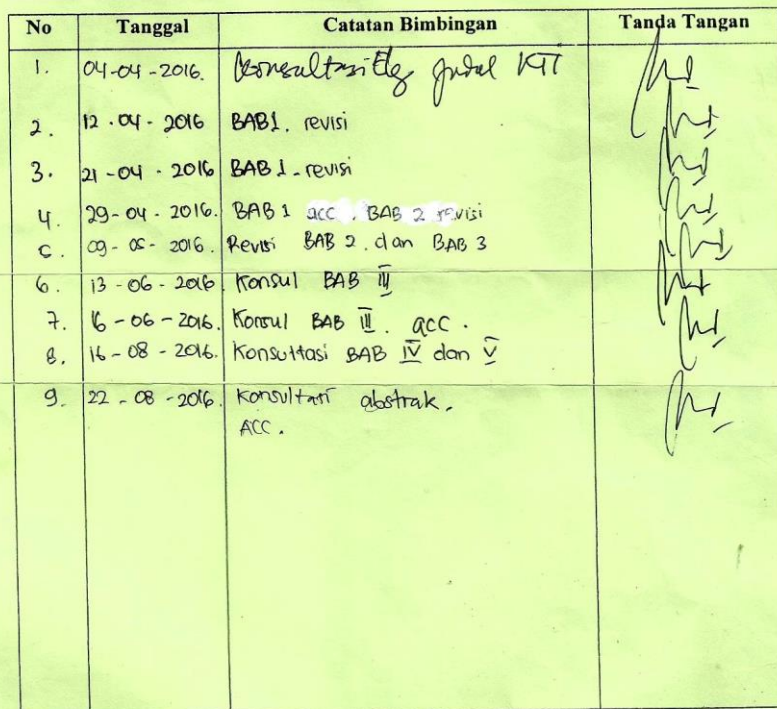 No Tanggal Catatan Bimbingan Tanda Tangan
1. 04-04-2016. Konsultasi judul KTI
2. 12-04-2016 BAB 1. revisi
3. 21-04-2016 BAB 1. revisi
4. 29-04-2016. BAB 1 acc. BAB 2 revisi
5. 09-05-2016. Revisi BAB 2. dan BAB 3
6. 13-06-2016 Konsul BAB III
7. 16-06-2016. Konsul BAB III. acc.
8. 16-08-2016. Konsultasi BAB IV dan V
9. 22-08-2016. Konsultasi abstrak.
ACC.